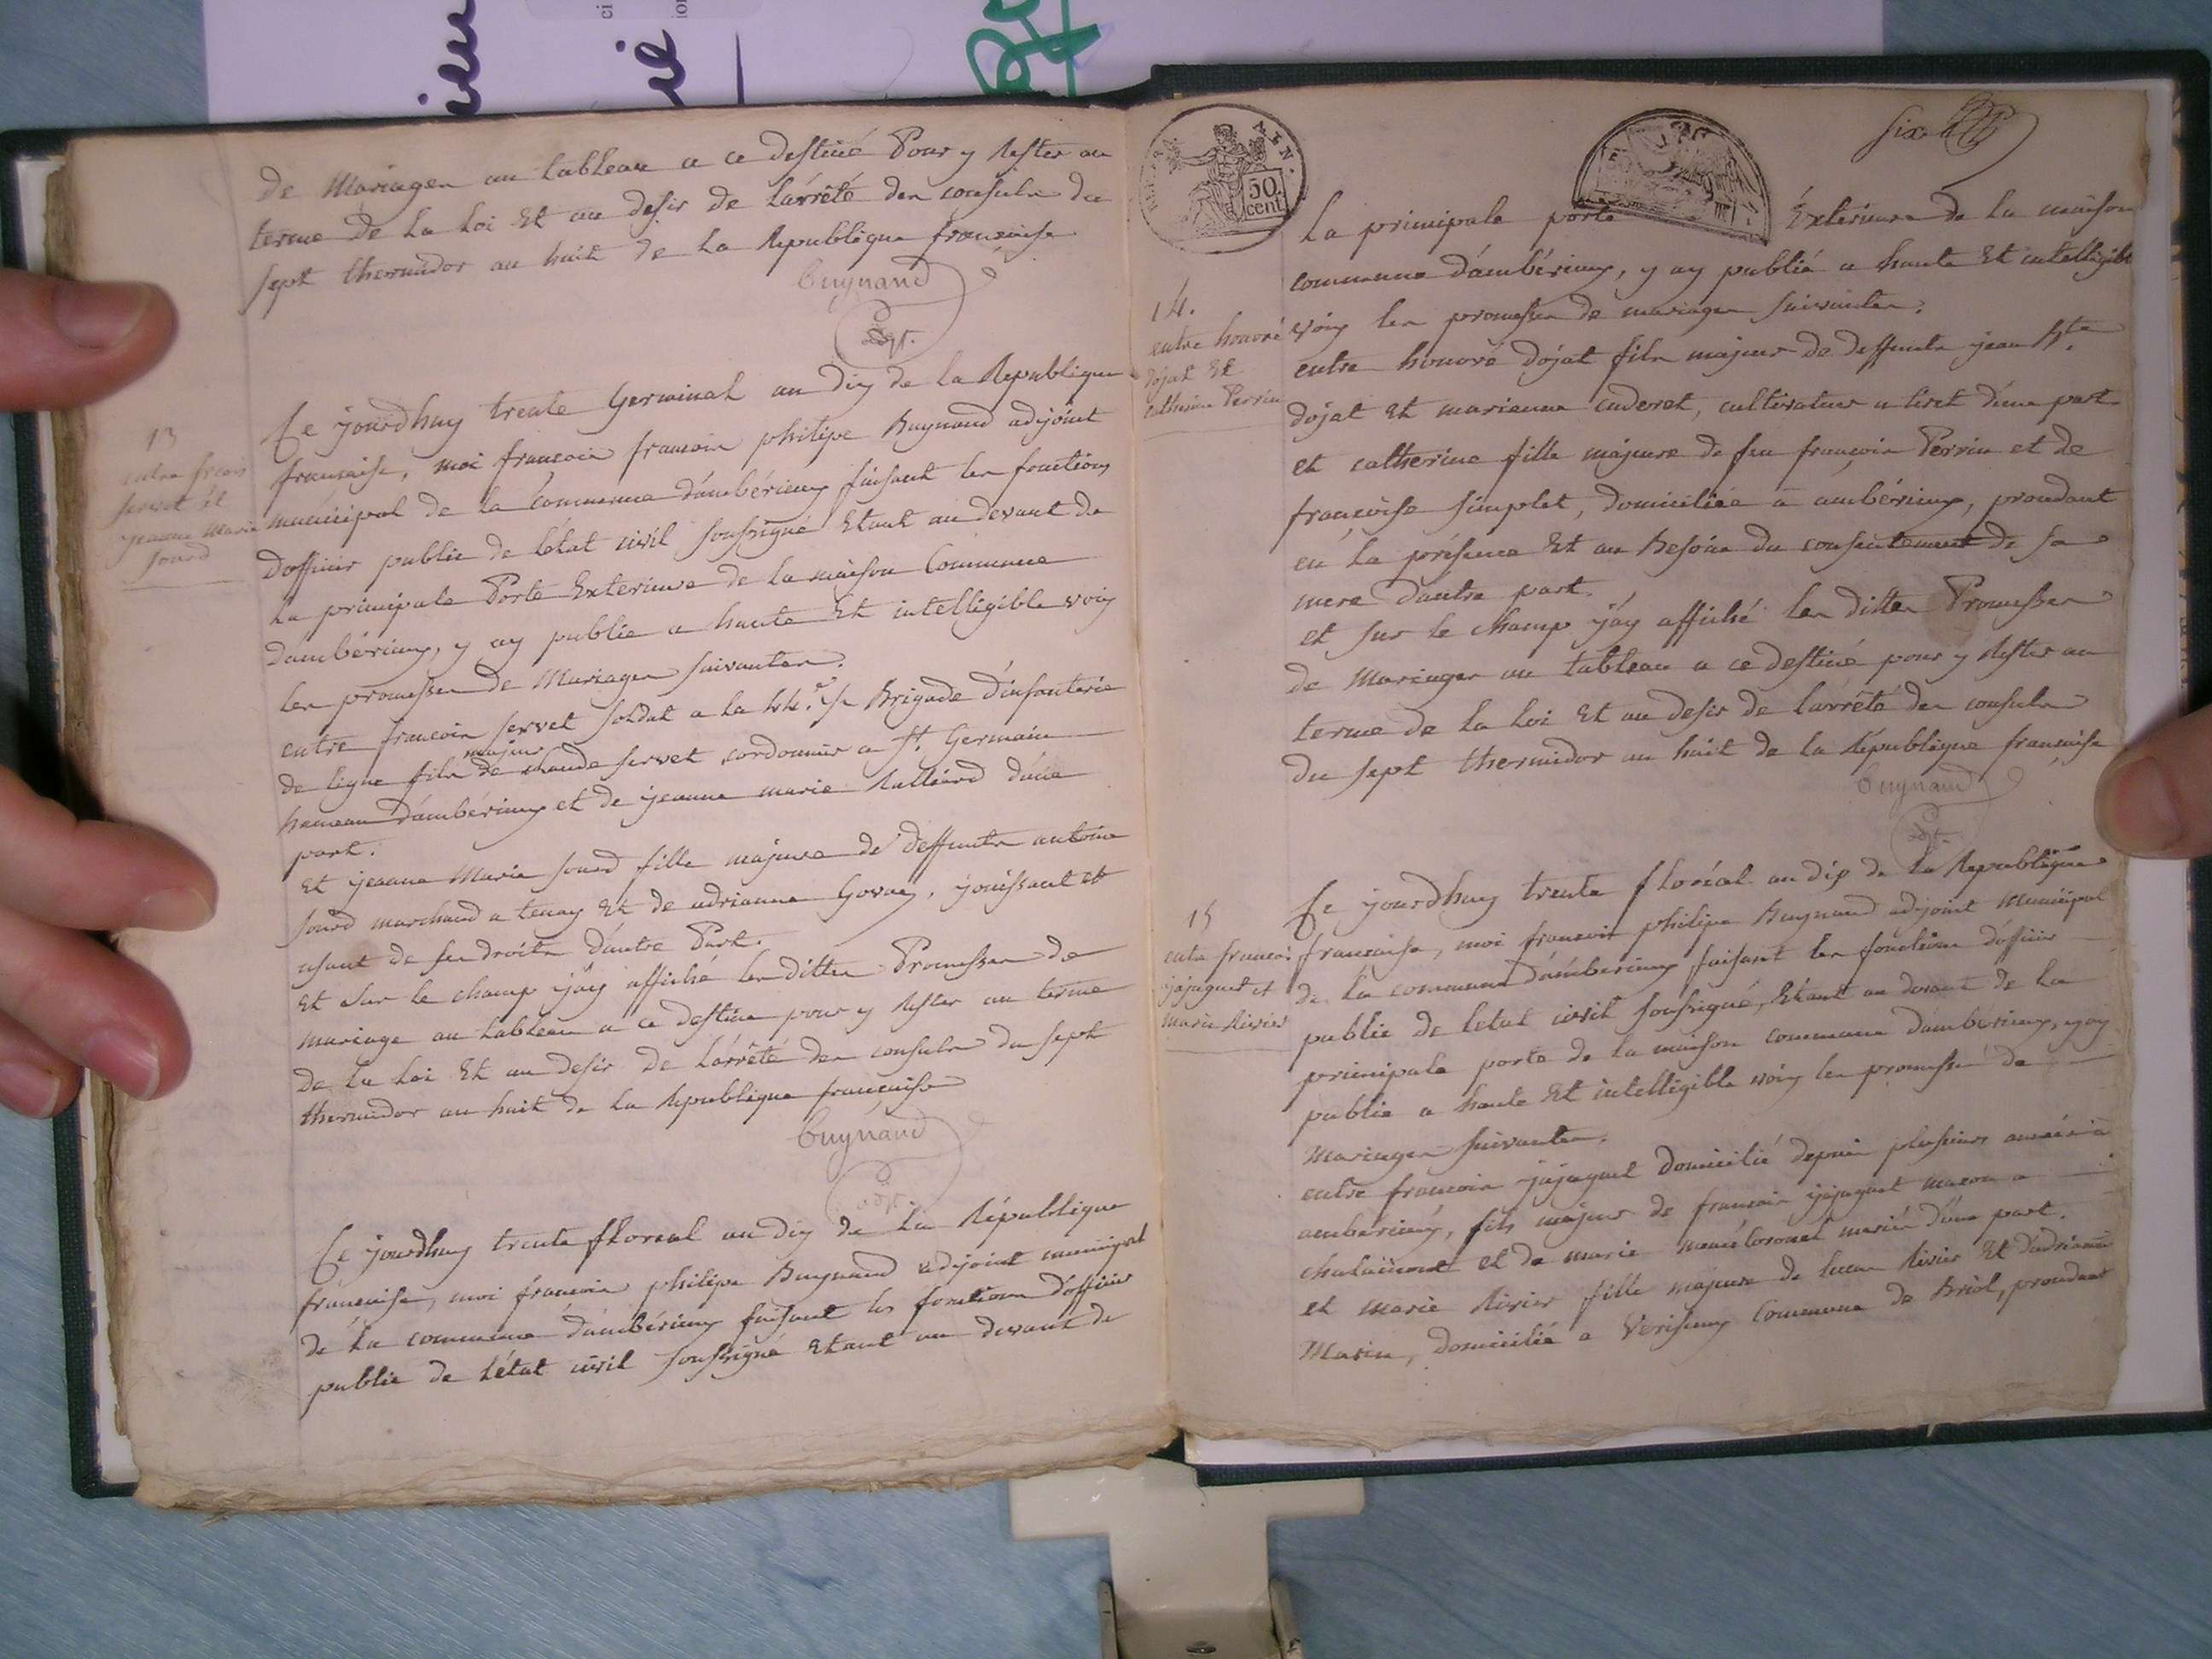 de Mariages au tableau a ce destiné Pour y Rester au
terme de la Loi Et au desir de L'arrêté des consuls du
sept thermidor an huit de la Republique francaise
Buynand
adjt.
13
entre frcois
servet et
jeanne Marie
Jourd
Ce jourdhuy trente Germinal an dix de la Republique
francaise, moi francois francois philipe Buynand adjoint
municipal de la Commune d'ambérieux faisant les fonctions
dofficier public de l'état civil soussigné Etant au devant de
la principale Porte Exterieure de la maison Commune
d'ambérieux, y ay publié a haute Et intelligible voix
les promesses de Mariages suivantes.
entre francois servet soldat a la 44.e 1/2 Brigade d'infanterie
de ligne fils majeur de claude servet cordonnier a St. Germain
hameau d'ambérieux et de jeanne marie d'une
part.
Et jeanne Marie jourd fille majeure de deffunts antoine
jourd marchand a tenay Et de adrianne jouissant et
usant de ses droits d'autre Part.
Et sur le champ j'ay affiché les dittes Promesses de
mariage au tableau a ce destiné pour y Rester au terme
de la Loi Et au desir de L'arrêté des consuls du sept
thermidor an huit de la Republique francaise
Buynand
adjt.
Ce jourdhuy trente floreal an dix de la République
francaise, moi francois philipe Buynand adjoint municipal
de la commune d'ambérieux faisant les fonctions d'officier
public de l'état civil soussigné Etant au devant de
50
cent
six.
La principale porte Exterieure de la maison
commune d'ambérieux, y ay publié a haute Et intelligible
voix les promesses de mariages suivantes.
14.
entre honoré
dojat Et
catherine Perrin
entre honoré dojat fils majeur de deffunts jean Bte.
dojat Et marianne cultivateur a tiret d'une part
et catherine fille majeure de feu françois Perrin et de
francoise simplet, domiciliée a ambérieux, procédant
en la présence Et au Besoin du consentement de sa
mere d'autre part.
et sur le champ j'ay affiché les dittes Promesses
de Mariages au tableau a ce destiné pour y Rester au
terme de la Loi Et au desir de L'arrêté des consuls
du sept thermidor an huit de la République francaise
Buynand
adjt.
15
entre francois
jajaquet et
marie Rivier
Ce jourdhuy trente floréal an dix de la Republique
francaise, moi francois philipe Buynand adjoint Municipal
de la commune d'amberieux faisant les fonctions d'officier
public de l'état civil soussigné, Etant au devant de la
principale porte de la maison commune d'amberieux, y ay
publié a haute Et intelligible voix les promesse de
Mariages suivantes.
entre francois jajaquet domicilié depuis plusieurs années a
amberieux, fils majeur de francois jajaquet macon a
et de marie mariés d'une part.
et marie Rivier fille majeure de lucas Rivier Et d'adrianne
Marin, domicilié a Verisieux Commune de Briot, procédant